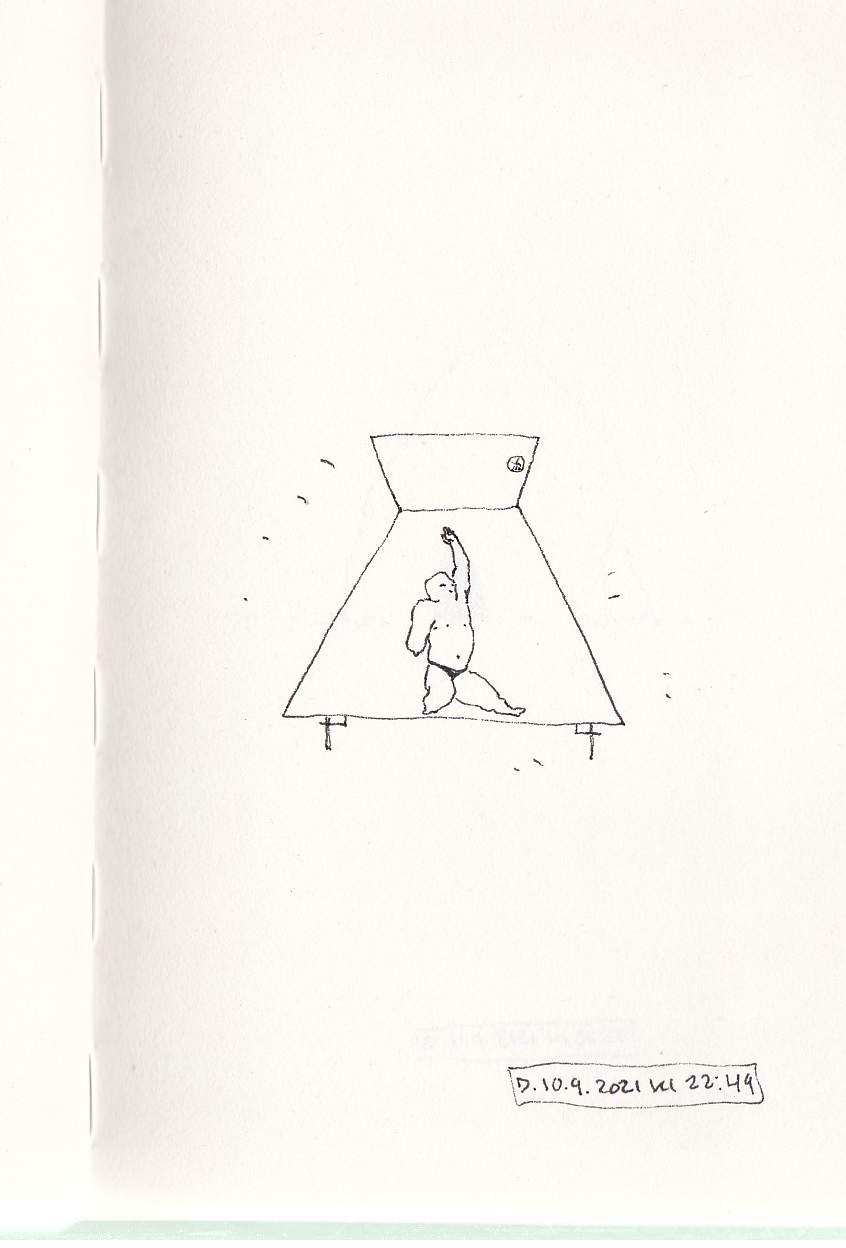 D. 10.9. 2021 kl 22:49